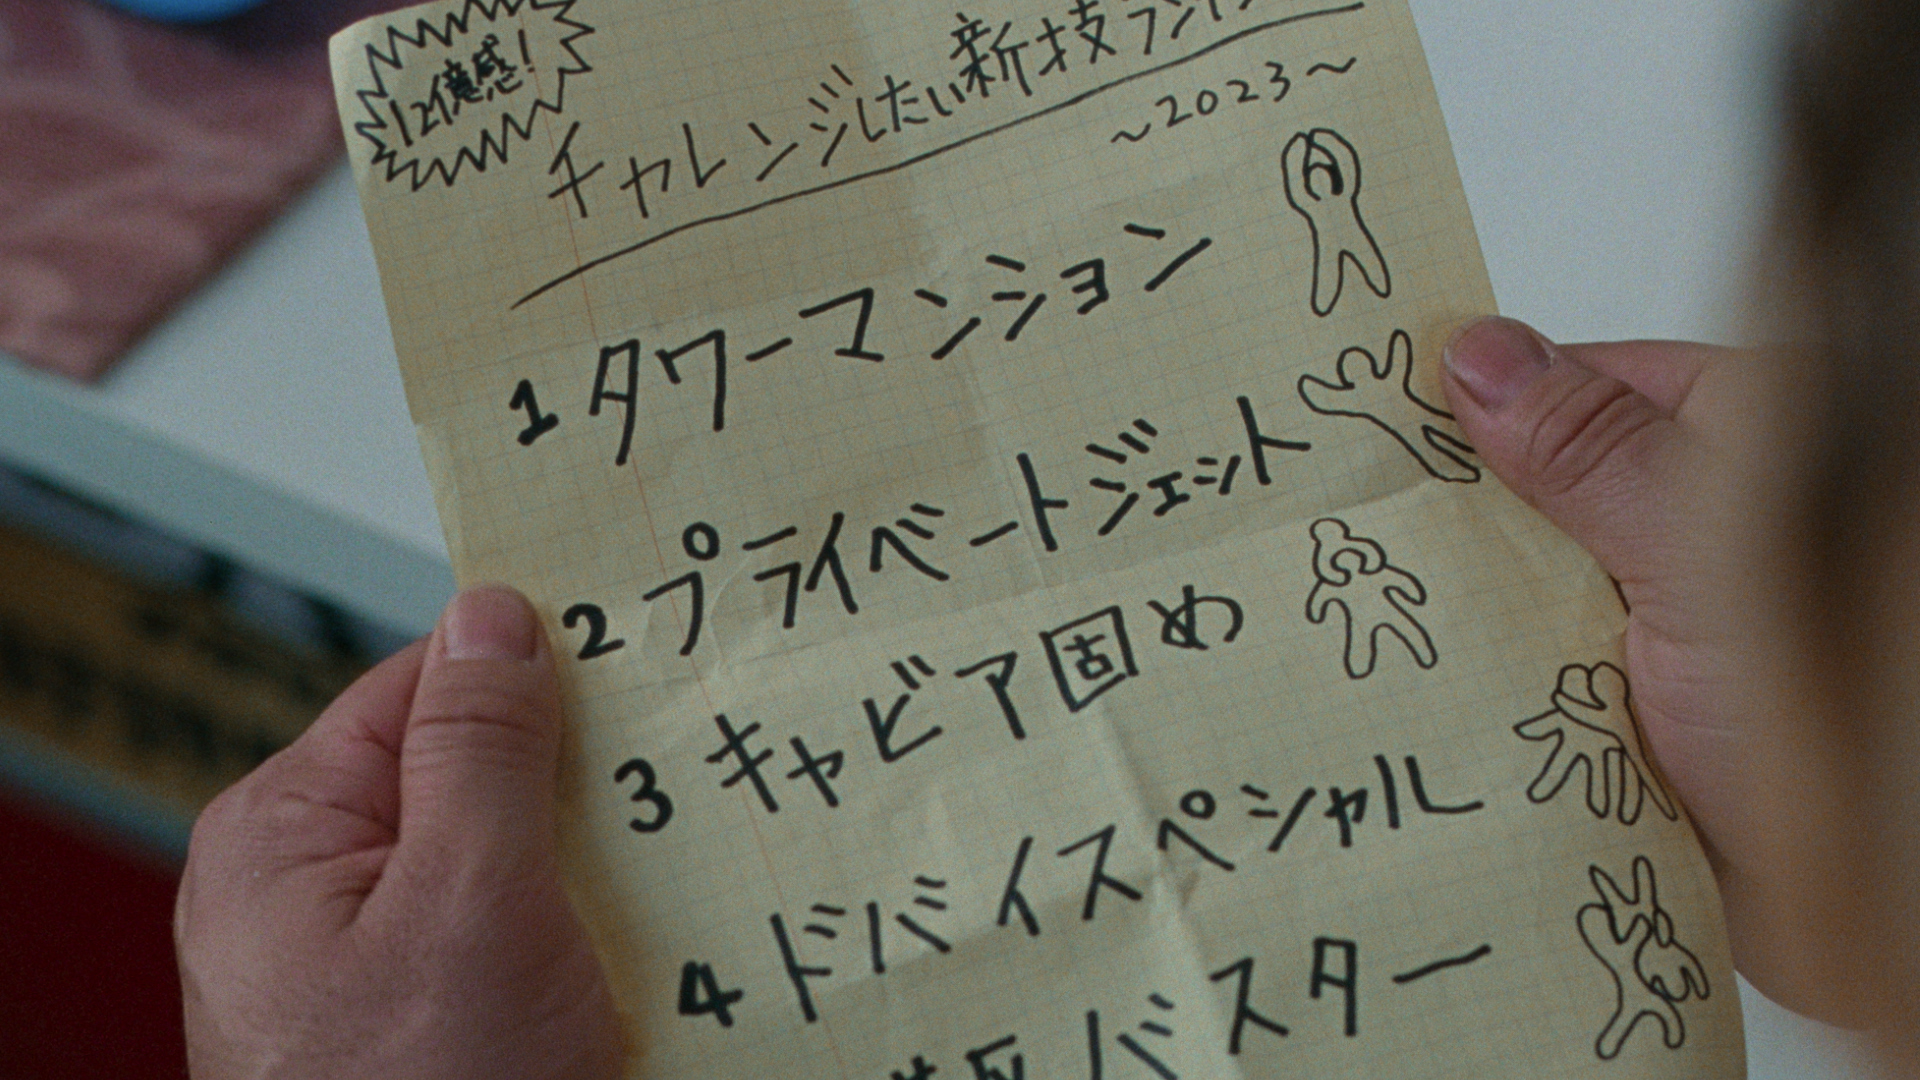 12億感!
チャレンジしたい新技ラン
~2023~
1 タワーマンション
2 プライベートジェット
3 キャビア固め
4 ドバイスペシャル
バスター